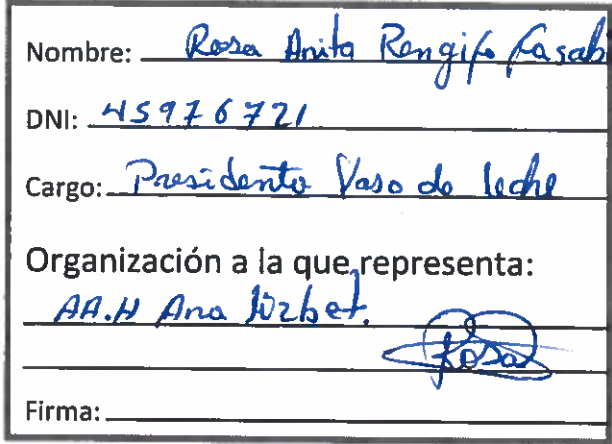 Nombre: Rosa Anita Rengifo Fasabi
DNI: 45976721
Cargo: Presidenta Vaso de leche
Organización a la que representa:
AA.H Ana Lizbet.
Rosa
Firma: